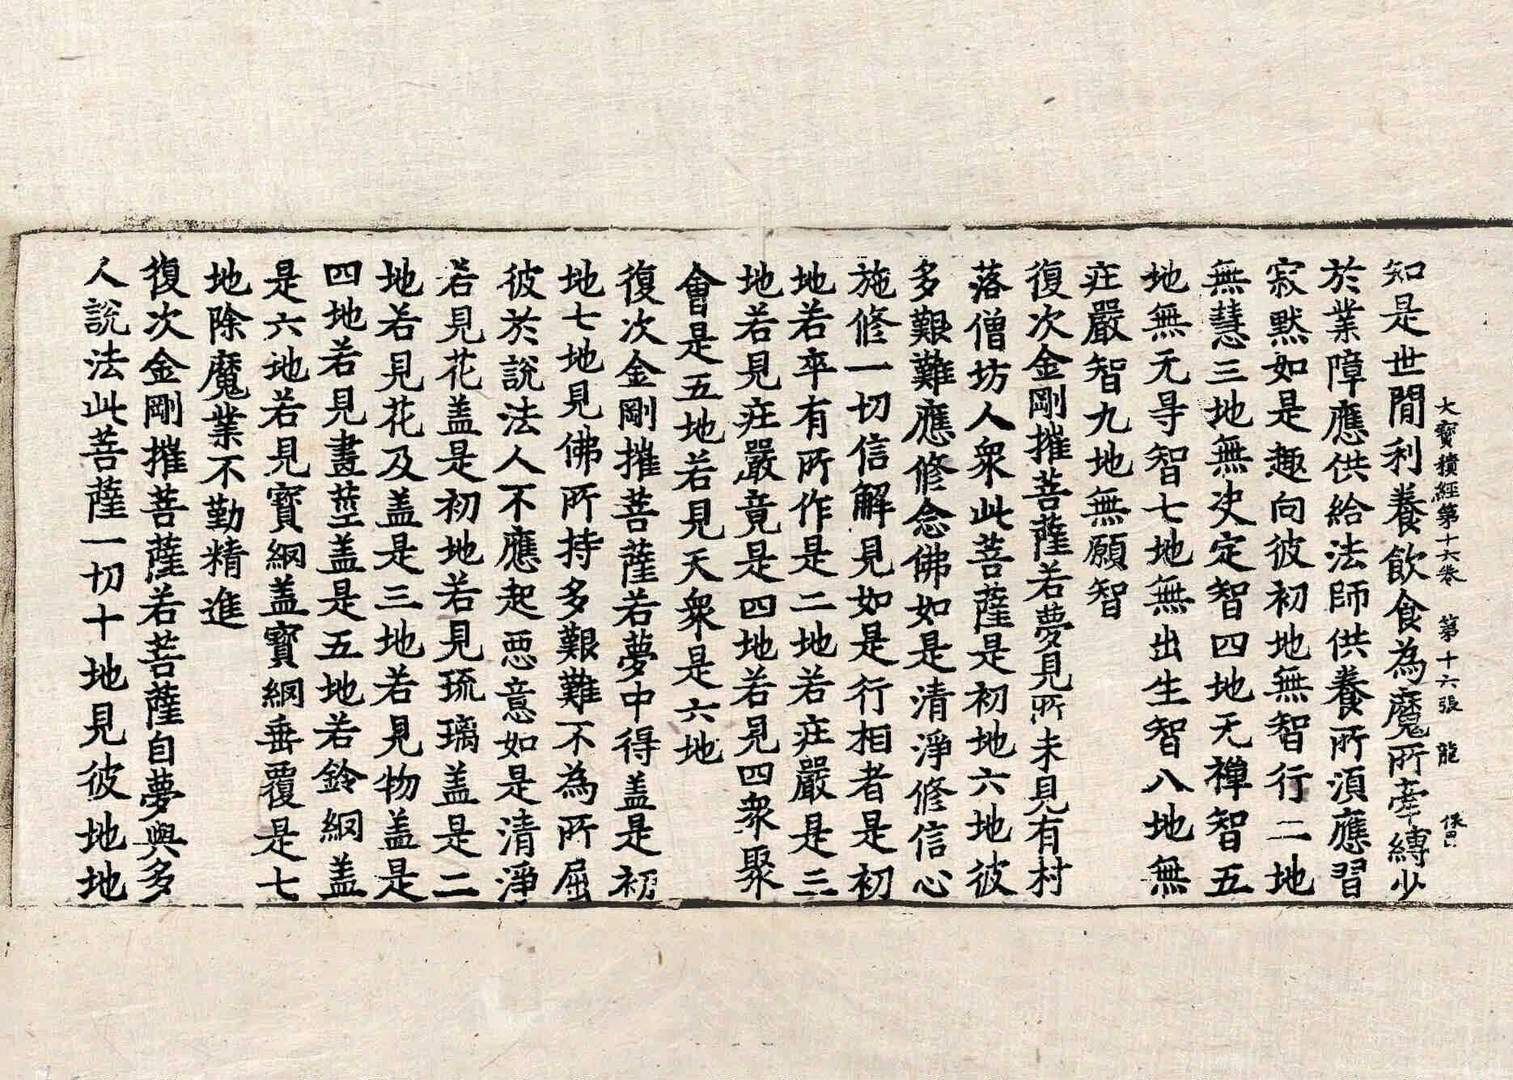 大寶積經第十六卷　第十六張　龍
知是世間利養飲食為魔所牽縛少
於業障應供給法師供養所湏應習
寂黙如是趣向彼初地無智行二地
無慧三地無决定智四地无禪智五
地無无㝵智七地無出生智八地無
疘嚴智九地無願智
復次金剛摧菩薩若夢見所未見有村
落僧坊人衆此菩薩是初地六地彼
多艱難應修念佛如是清淨修信心
施修一切信解見如是行相者是初
地若卒有所作是二地若疘嚴是三
地若見疘嚴竟是四地若見四衆聚
會是五地若見天衆是六地
復次金剛摧菩薩若夢中得盖是初
地七地見佛所持多艱難不為所屈
彼於說法人不應起惡意如是清淨
若見花盖是初地若見琉璃盖是二
地若見花及盖是三地若見物盖是
四地若見晝莖盖是五地若鈴網盖
是六地若見寶網盖寶網垂覆是七
地除魔業不勤精進
復次金剛摧菩薩若菩薩自夢與多
人說法此菩薩一切十地見彼地地